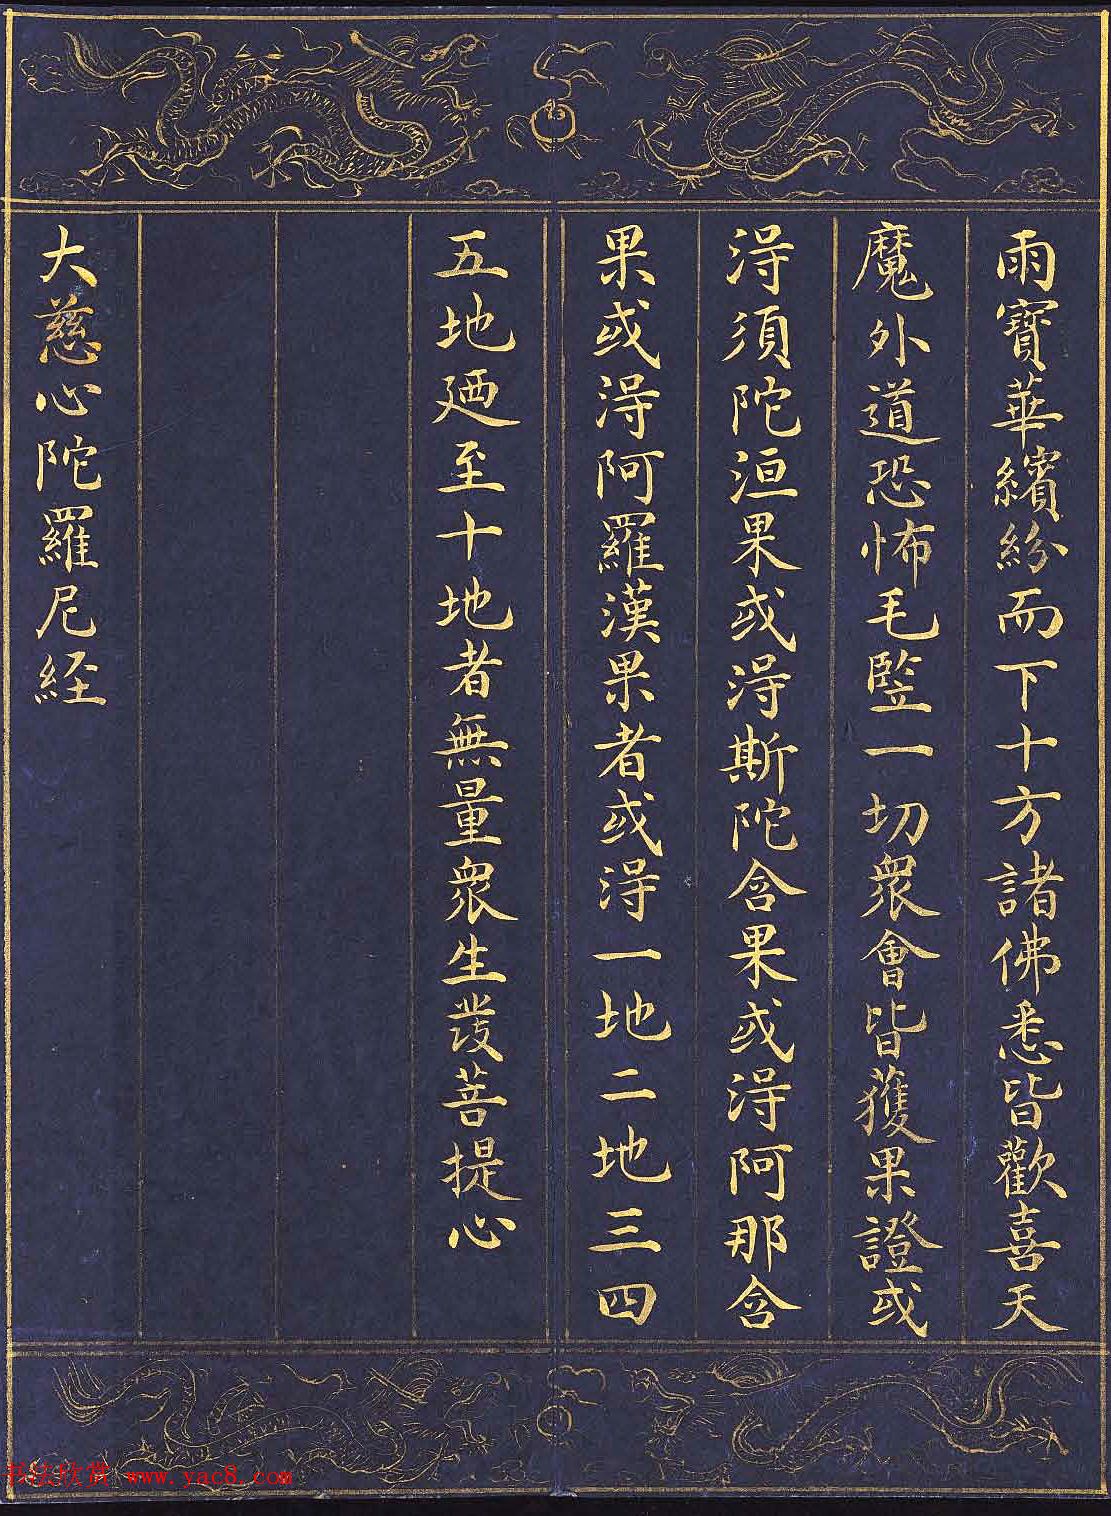 雨寶華繽紛而下十方諸佛悉皆歡喜天
魔外道恐怖毛竪一切衆會皆獲果證或
得須陀洹果或得斯陀含果或得阿那含
果或得阿羅漢果者或得一地二地三四
五地廼至十地者無量衆生發菩提心
大慈心陀羅尼経
书法欣赏 www.yac8.com